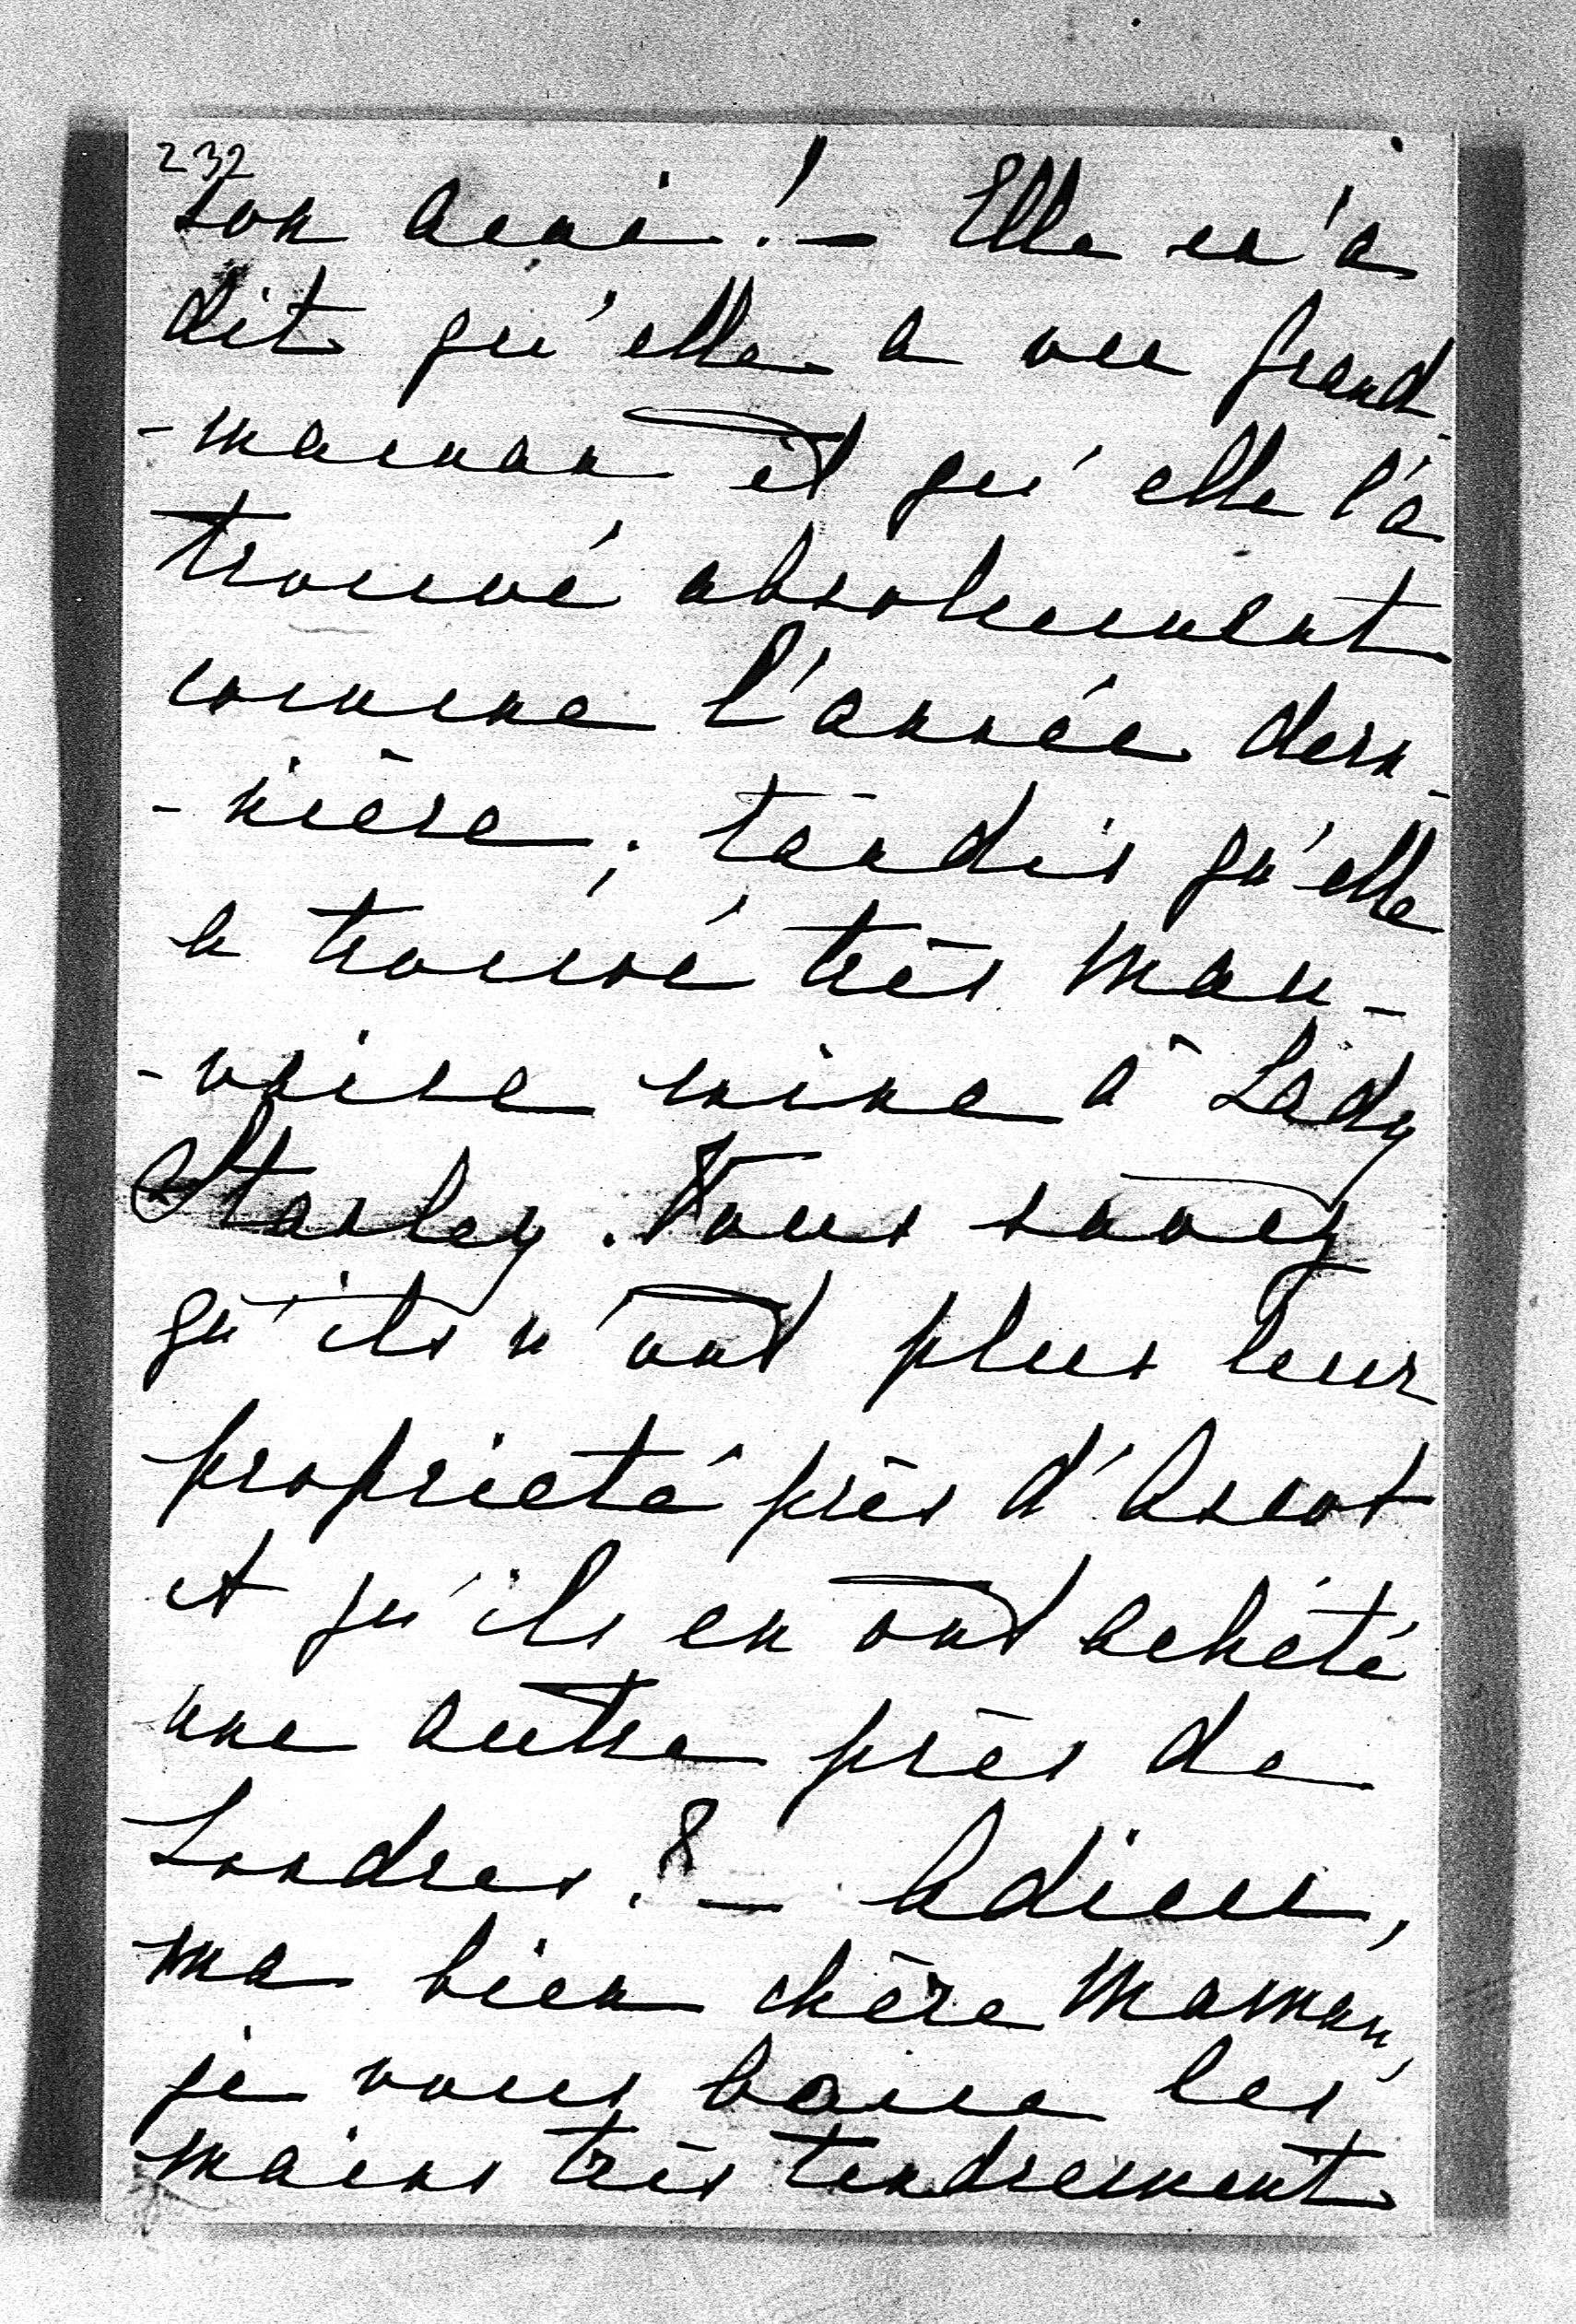 232
son ami! — Elle m'a
dit qu'elle a vu Grand-
-maman et qu'elle l'a
trouvé absolument
comme l'année dern-
-nière; tandis qu'elle
a trouvé très mau-
-vaise mine à Lady
Stanley. Vous savez
qu'ils n'ont plus leur
proprieté près d'Ascot
et qu'ils en ont acheté
une autre près de
Londres. — Adieu,
ma bien chère Maman,
je vous baise les
mains très tendrement